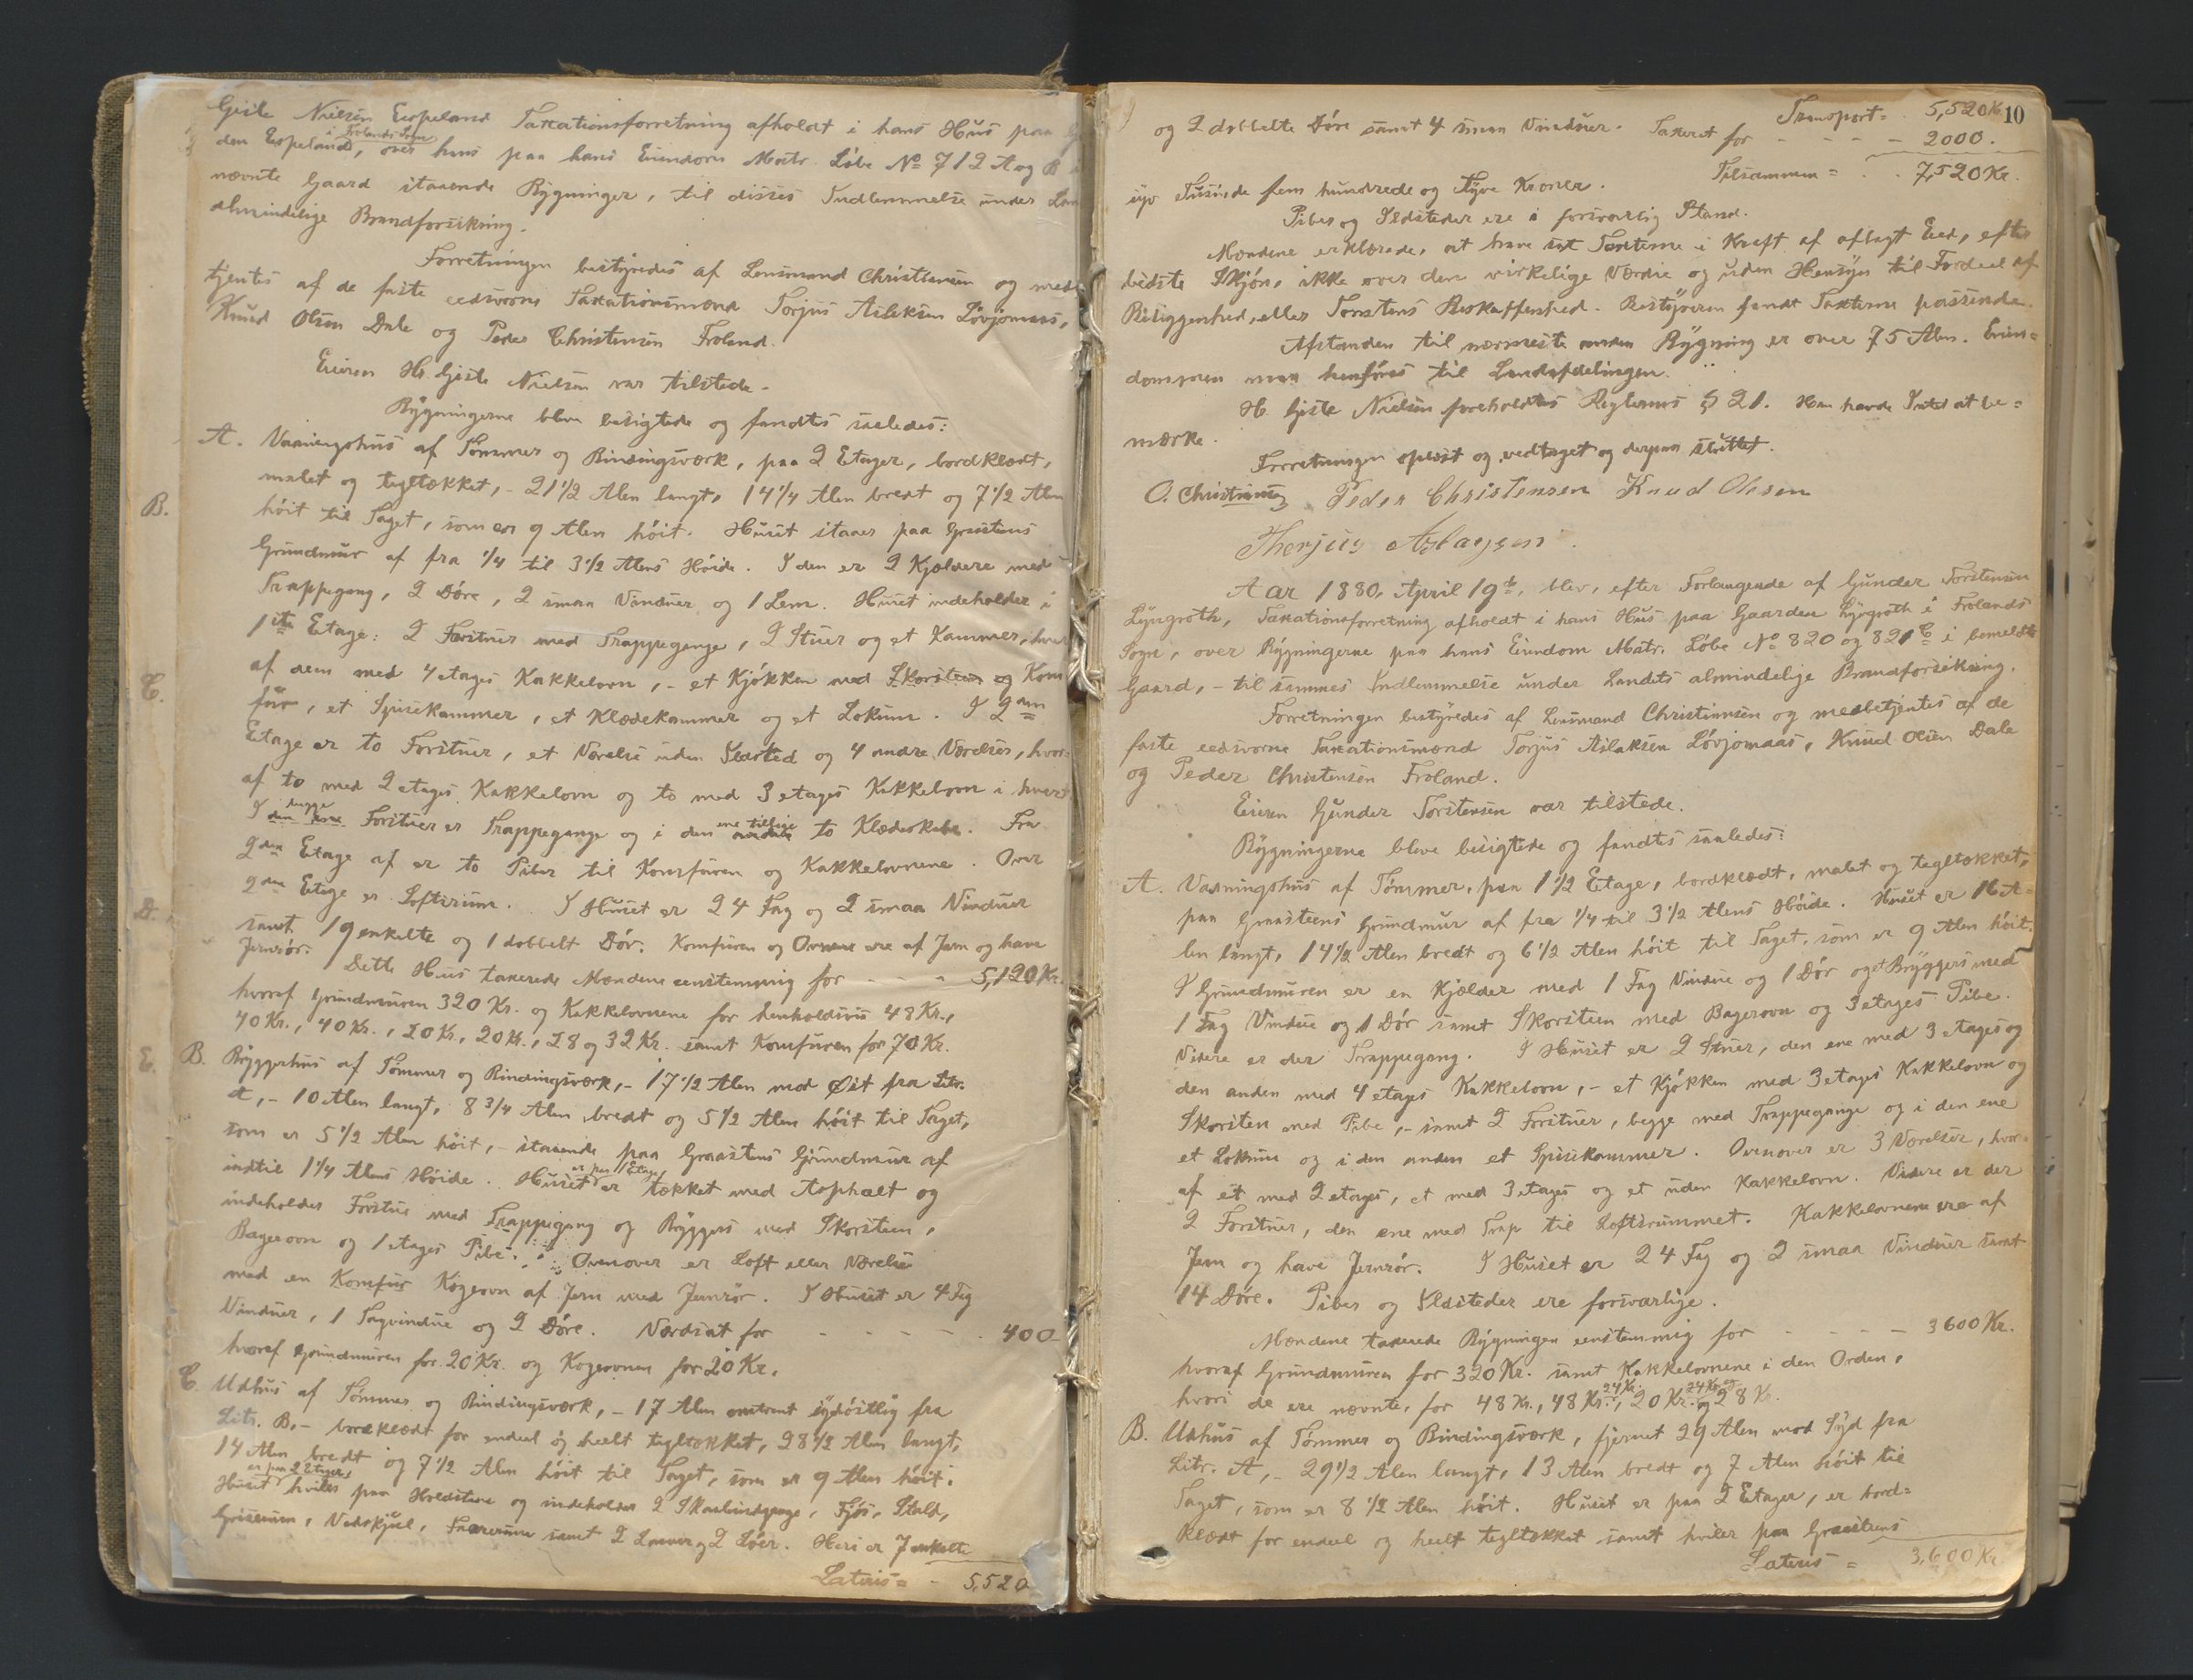 Giste Nielsen Espeland Taxationsforretning afholdt i hans Hus paa
i Frolands Sogn
den Espeland, over hans paa hans Eiendom Matr. Løbe No 712 A og B i
nævnte Gaard staaende Bygninger, til disses Indlemmelse under Lan
almindelige Brandforsikring.
Forretningen bestyredes af Lensmand Christiansen og med
tjentes af de faste eedsvorne Taxationsmænd Torjus Aslaksen Løvjomaas,
Knud Olsen Dale og Peder Christensen Froland.
Eieren Hr. Giste Nielsen var tilstede.
Bygningerne bleve besigtede og fandtes saaledes:
A. Vaaningshus af Tømmer og Bindingsværk, paa 2 Etager, bordklædt,
malet og tegltækket, - 21 1/2 Alen langt, 14 1/4 Alen bredt og 7 1/2 Alen
B.
høit til Taget, som er 9 Alen høit. Huset staaer paa Graasteens
Grundmuur af fra 1/4 til 3 1/2 Alens Høide. I den er 2 Kjældere med
Trappegang, 2 Døre, 2 smaa Vinduer og 1 Lem. Huset indeholder i
1ste Etage: 2 Forstuer med Trappegange, 2 Stuer og et Kammer, hver
af dem med 4 etages Kakkelovn, - et Kjøkken med Skorsteen og Kom
C.
fur, et Spisekammer, et Klædekammer og et Lokum. I 2den
Etage er to Forstuer, et Værelse uden Ildsted og 4 andre Værelser, hvor=
af to med 2 etages Kakkelovn og to med 3 etages Kakkelovn i hvert
begge ene tillige
I den ene Forstuer er Trappegange og i den anden to Klædeskabe. Fra
2den Etage af er to Piber til Komfuren og Kakkelovnene. Over
2den Etage er Loftsrum. I Huset er 24 Fag og 2 smaa Vinduer
D.
samt 19 enkelte og 1 dobbelt Dør. Komfuren og Ovnene ere af Jern og have
Jernrør.
Dette Hus taxerede Mændene eenstemmig for - - - 5,120 Kr.
hvoraf Grundmuren 320 Kr. og Kakkelovnene for henholdsvis 48 Kr.,
40 Kr., 40 Kr., 20 Kr., 20 Kr., 28 og 32 Kr. samt Komfuren for 70 Kr.
E.
B. Bryggerhus af Tømmer og Bindingsværk, - 17 1/2 Alen mod Øst fra Litr.
A, - 10 Alen langt, 8 3/4 Alen bredt og 5 1/2 Alen høit til Taget,
som er 5 1/2 Alen høit, - staaende paa Graasteens Grundmuur af
indtil 1 1/4 Alens Høide. Huset er paa 1 Etage, er tækket med Asphalt og
indeholder Forstue med Trappegang og Bryggers med Skorsteen,
Bagerovn og 1 etages Pibe. Ovenover er Loft eller Værelse
med en Komfur Kogeovn af Jern med Jernrør. I Huset er 4 Fag
Vinduer, 1 Tagvindue og 2 Døre. Værdsat for - - - - - 400
hvoraf Grundmuren for 20 Kr. og Kogeovnen for 20 Kr.
C. Udhus af Tømmer og Bindingsværk, - 17 Alen omtrent sydøstlig fra
Litr. B, - bordklædt for endeel og heelt tegltækket, 28 1/2 Alen langt,
14 Alen bredt og 7 1/2 Alen høit til Taget, som er 9 Alen høit.
er paa 2 Etager,
Huset hviler paa Holdstene og indeholder 2, Fjøs, Stald,
Griserum, Vedskjul, samt 2 og 2 Løer. Heri er 7 enkelte
Lateris = - 5,520
10
Transport = 5,520 Kr.
og 2 dobbelte Døre samt 4 smaa Vinduer. Taxeret for - - - - 2000.
Tilsammen = . . 7,520 Kr.
syv Tusinde fem hundrede og Tyve Kroner.
Piber og Ildsteder ere i forsvarlig Stand.
Mændene erklærede, at have sat Taxterne i Kraft af aflagt Eed, efter
bedste Skjøn, ikke over den virkelige Værdie og uden Hensyn til Fordeel af
Beliggenhed, eller Tomtens Beskaffenhed. Bestyreren fandt Taxterne passende.
Afstanden til nærmeste anden Bygning er over 75 Alen. Eien=
dommen maa henføres til Landafdelingen.
H. Giste Nielsen foreholdtes Reglernes § 21. Han havde Intet at be=
mærke.
Forretningen oplæst og vedtaget og derpaa sluttet.
O. Christiansen Peder Christensen Knud Olesen
Thorjus Aslagsen.
Aar 1880, April 19de, blev, efter Forlangende af Gunder Torstensen
Lyngroth, Taxationsforretning afholdt i hans Hus paa Gaarden Lyngroth i Frolands
Sogn, over Bygningerne paa hans Eiendom Matr. Løbe No 820 og 821 C i bemeldte
Gaard, - til sammes Indlemmelse under Landets almindelige Brandforsikring.
Forretningen bestyredes af Lensmand Christiansen og medbetjentes af de
faste eedsvorne Taxationsmænd Torjus Aslaksen Løvjomaas, Knud Olsen Dale
og Peder Christensen Froland.
Eieren Gunder Torstensen var tilstede.
Bygningerne bleve besigtede og fandtes saaledes:
A. Vaaningshus af Tømmer, paa 1 1/2 Etage, bordklædt, malet og tegltækket,
paa Graasteens Grundmur af fra 1/4 til 3 1/2 Alens Høide. Huset er 16 A=
len langt, 14 1/2 Alen bredt og 6 1/2 Alen høit til Taget, som er 9 Alen høit.
I Grundmuren er en Kjælder med 1 Fag Vindue og 1 Dør og et Bryggers med
1 Fag Vindue og 1 Dør samt Skorsteen med Bagerovn og 3 etages Pibe.
Videre er der Trappegang. I Huset er 2 Stuer, den ene med 3 etages og
den anden med 4 etages Kakkelovn, - et Kjøkken med 3 etages Kakkelovn og
Skorsten med Pibe, - samt 2 Forstuer, begge med Trappegange og i den ene
et Lokum og i den anden et Spisekammer. Ovenover er 3 Værelser, hvor=
af et med 2 etages, et med 3 etages og et uden Kakkelovn. Videre er der
2 Forstuer, den ene med Trap til Loftsrummet. Kakkelovnene ere af
Jern og have Jernrør. I Huset er 24 Fag og 2 smaa Vinduer samt
14 Døre. Piber og Ildsteder ere forsvarlige.
Mændene taxerede Bygningen eenstemmig for - - - - 3600 Kr.
hvoraf Grundmuren for 320 Kr. samt Kakkelovnene i den Orden,
24 Kr. 24 Kr. og
hvori de ere nævnte, for 48 Kr., 48 Kr., 20 Kr. og 28 Kr.
B. Udhus af Tømmer og Bindingsværk, fjernet 29 Alen mod Syd fra
Litr. A, - 29 1/2 Alen langt, 13 Alen bredt og 7 Alen høit til
Taget, som er 8 1/2 Alen høit. Huset er paa 2 Etager, er bord=
klædt for endeel og heelt tegltækket samt hviler paa Graasteens
Lateris = 3,600 Kr.